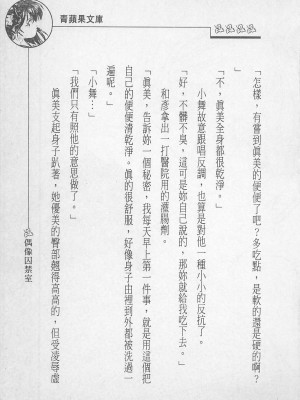 青蘋果文庫
「怎樣,有嘗到眞美的便便了吧?多吃點,是軟的還是硬的啊?
」
「不,眞美全身都很乾淨。」
小舞故意跟唱反調,也算是對他一種小小的反抗了。
「好,不髒不臭,這可是妳自己說的,那妳就給我吃下去。」
和彥拿出一打醫院用的灌腸劑。
「眞美,告訴妳一個秘密,我每天早上第一件事,就是用這個把
自己的便便清乾淨。眞的很舒服,好像身子由裡到外都被洗過一
遍呢。」
「小舞…」
「我們只有照他的意思做了。」
眞美支起身子趴著,她優美的臀部翹得高高的,但受凌辱虛
偶像囚禁室